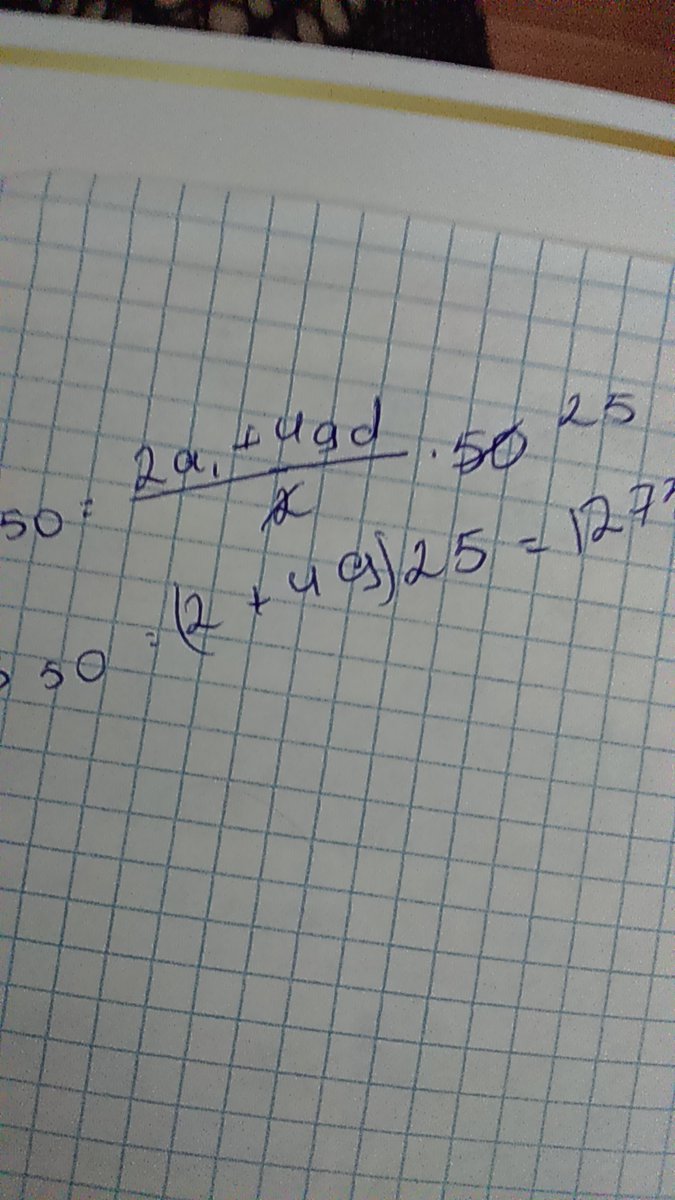 50 = 2a₁ + 49d / 2 · 50 25
S 50 = (2 + 49) 25 = 127